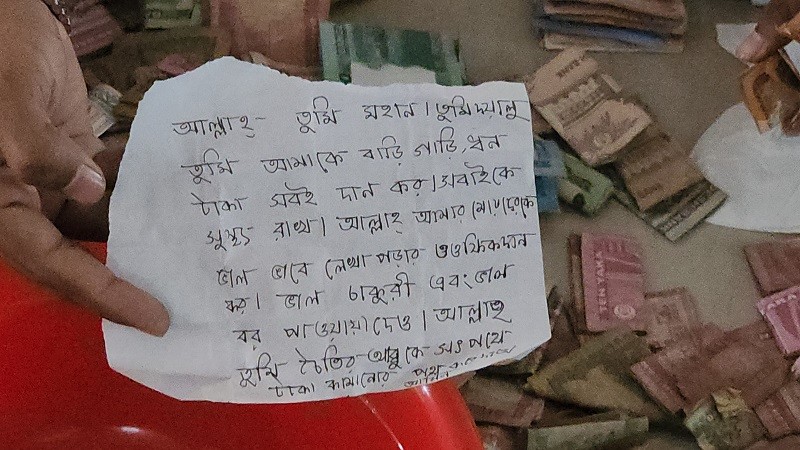 আল্লাহ্ তুমি মহান। তুমি দয়ালু
তুমি আমাকে বাড়ি গাড়ি, ধন
টাকা সবই দান কর। সবাইকে
সুস্থ্য রাখ। আল্লাহ্ আমার মেয়েদেরকে
ভাল ভাবে লেখা পড়ার তওফিকদান
কর। ভাল চাকুরী এবং ভাল
বর পাওয়ায়া দেও। আল্লাহু
তুমি চৈতির আব্বুকে সৎ পথে
টাকা কামানোর পথ
TEN TAKA